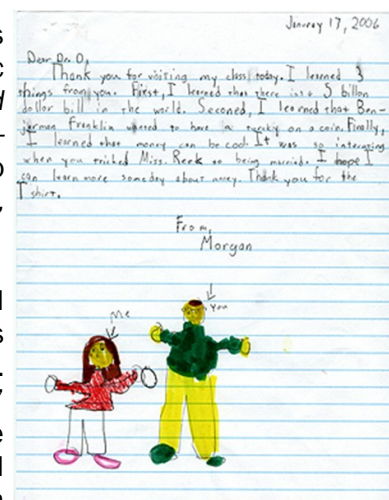 January 17, 2006
Dear Dr. O,
Thank you for visiting my class today. I learned 3
things from you. First, I learned that there isnt a 5 billon
dollar bill in the world. Seconed, I learned that Ben-
jerman Franklin wanted to have a turkey on a coin. Finally,
I learned that money can be cool. It was so interesting
when you tricked Miss. Reek to being married. I hope I
can learn more someday about money. Thank you for the
T shirt.
From,
Morgan
me
You